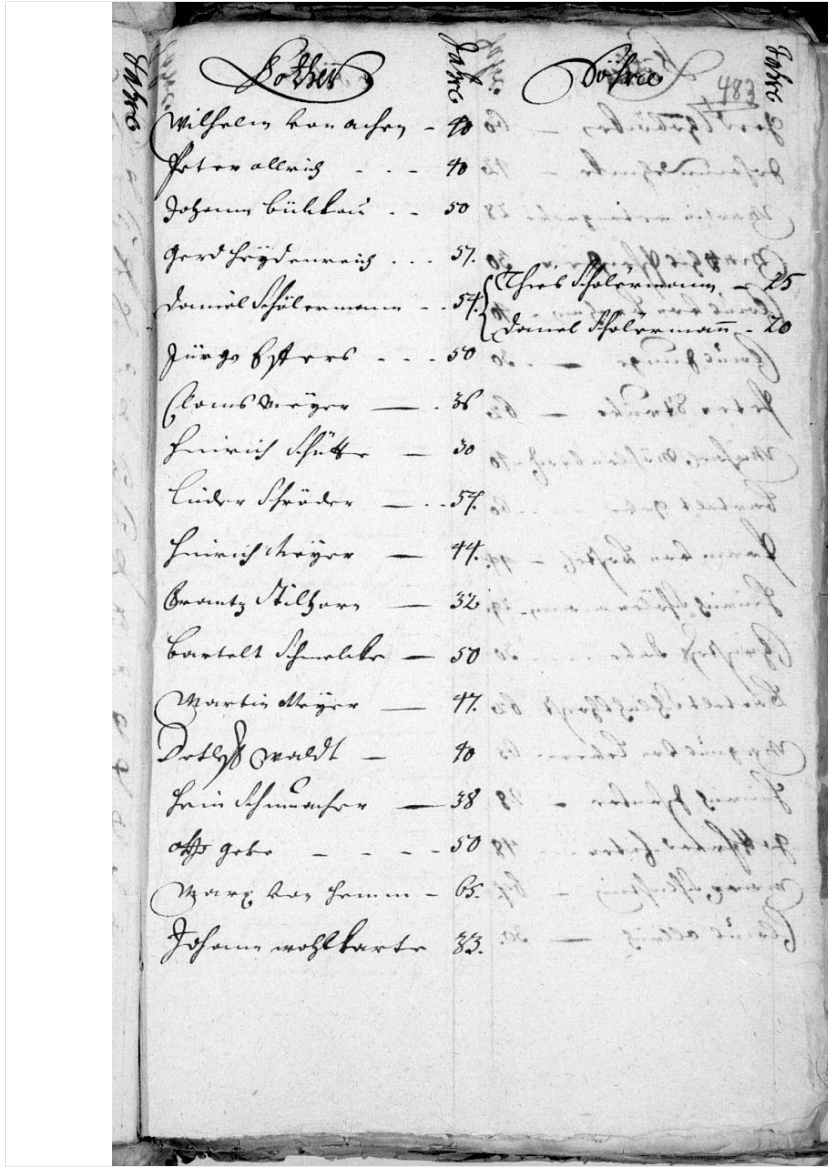 Jahre
Kother Jahre Söhne Jahre
483
Wilhelm von achen - 40
Peter allrich - - - 40
Johann bülkau - - 50
Gerd heydenreich - - - 57.
Daniel Schölermann - - 54. Thies Scholermann - 25
Daniel Scholermañ - 20
Jürgo Esters - - - 50
Claus Meyer - 36
Heinrich Schütte - 30
Lüder Schröder - 57.
Heinrich Meyer - 44.
Frantz Stilhorn - 32
Bartelt Schmelcke - 50
Martin Meyer - 47.
Detleff Waldt - 40
Hein Schumacher - 38
otto geke - - - - 50
Marx von hemm - 65.
Johann wohlkarte 33.